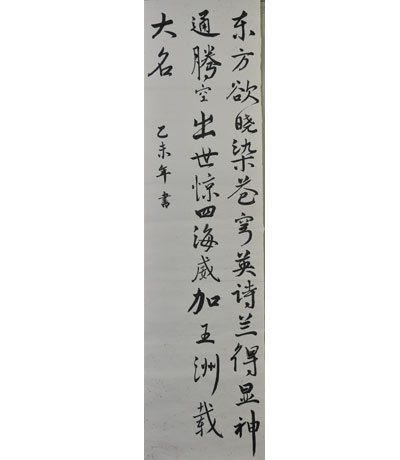 东方欲晓染苍穹英诗兰得显神
通腾空出世惊四海威加五洲载
大名
乙未年书